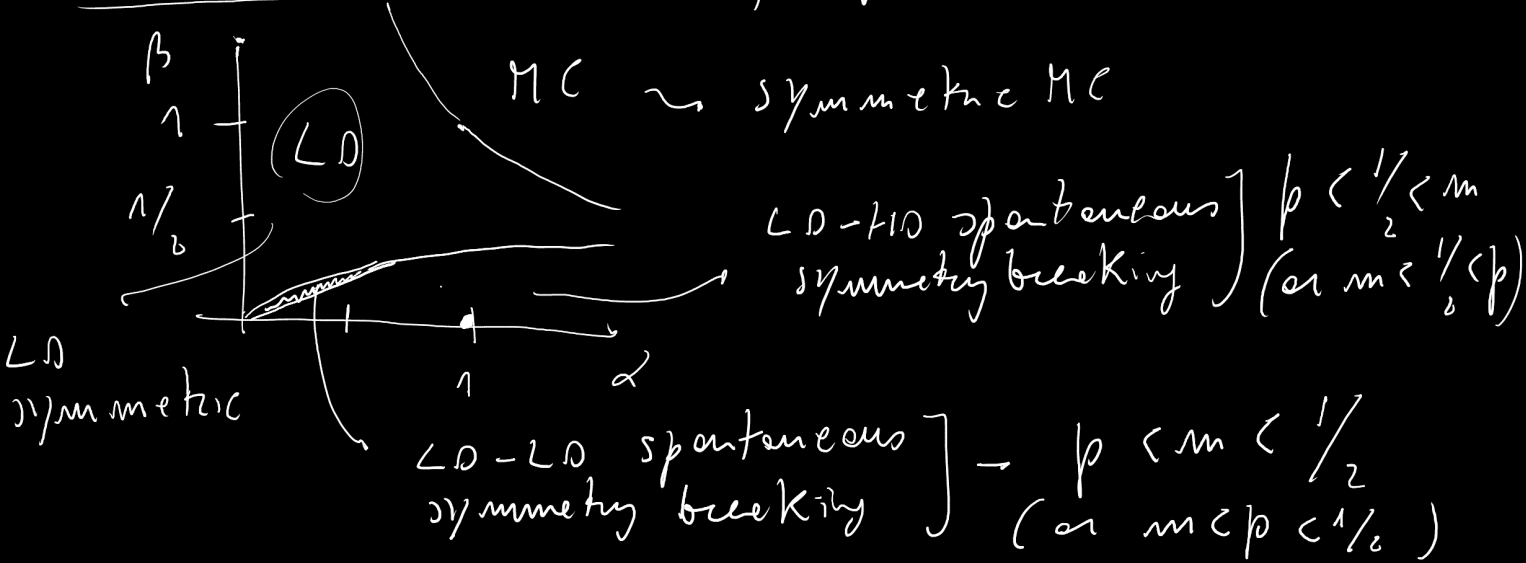 β
MC ⤳ symmetric MC
1
LD
1/2
LD-HD spontaneous symmetry breaking ] p < 1/2 < m
(or m < 1/2 < p)
LD symmetric
1
α
LD-LD spontaneous symmetry breaking ] – p < m < 1/2
(or m < p < 1/2)